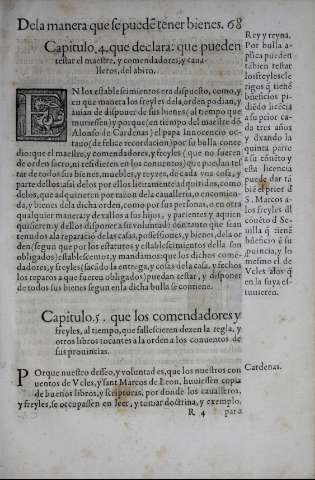 De la manera que se puedẽ tener bienes. 68
Capitulo. 4. que declara: que pueden
testar el maestre, y comendadores, y caua-
lleros, del abito.
EN los establescimientos era dispuesto, como, y
en que manera los freyles de la orden podian, y
auian de disponer de sus bienes, al tiempo que
muriessen) y porque (en tiempo del maestre dõ
Alonso de Cardenas) el papa Innocencio oc-
tauo (de felice recordacion) por su bulla conce
dio: que el maestre, y comendadores, y freyles (que no fueren
de orden sacro, ni residieren en los conuentos) que puedan tes-
tar de todos sus bienes, muebles, y reyzes, de cada vna cosa, y
parte dellos: assi delos por ellos licitamente adquiridos, como
delos, que adquirieron por razõ dela caualleria, o encomien-
da, y bienes dela dicha orden, como por sus personas, o en otra
qualquier manera: y dexallos a sus hijos, y parientes y a quien
quisieren: y dellos disponer a su voluntad: con tanto que sean
tenudos ala reparaciõ de las casas, possessiones, y bienes, dela or
den (segun que por los estatutos y establescimiẽtos della son
obligados) establescemos, y mandamos: que los dichos comẽ-
dadores, y freyles (sacado la entrega, y cosas dela casa, y fechos
los reparos a que fueren obligados) puedan testar, y disponer
de todos sus bienes segun en la dicha bulla se contiene.
Capitulo. 5. que los comendadores y
freyles, al tiempo, que fallescieren dexen la regla, y
otros libros tocantes a la orden a los conuentos de
sus prouincias.
POr que nuestro deseo, y voluntad es, que los nuestros con
uentos de Vcles, y sant Marcos de Leon, huuiessen copia
de buenos libros, y scripturas, por donde los caualleros,
y freyles, se occupassen en leer, y tomar doctrina, y exemplo,
R 4 para
Rey y reyna.
Por bulla a-
plica pueden
tabien testar
los freyles cle
rigos q̃ tienẽ
beneficios pi
diẽdo licẽcia
a su prior ca-
da tres años
y dxando la
quinta parte
a su cõuẽto y
esta licencia
puede dar tã
biẽ el prior d̃
S. Marcos a
los freyles dl
cõuẽto d̃ Se-
uilla q̃ tienẽ
bẽeficio ẽ su
puincia, y lo
mesmo el de
Vcles alos q̃
en la suya es-
tuuieren.
Cardenas.